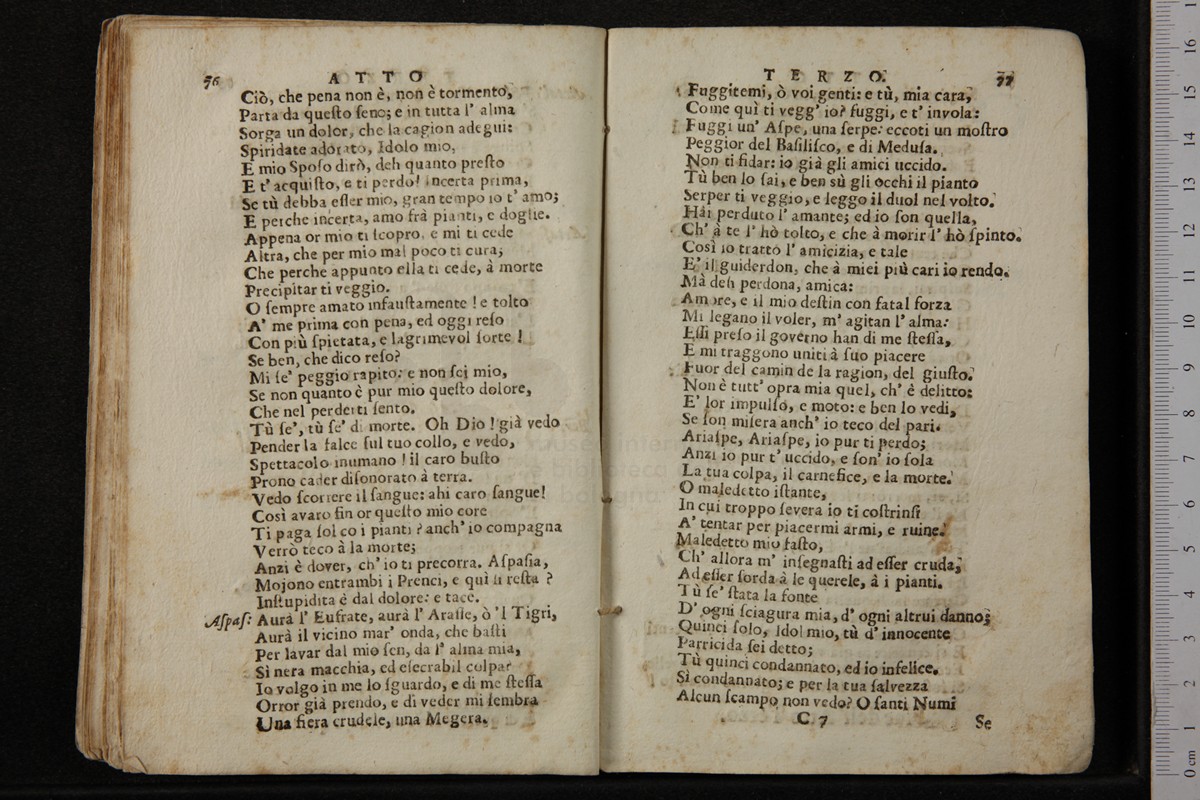 76 ATTO
Ciò, che pena non è, non è tormento,
Parta da queſto ſeno; e in tutta l' alma
Sorga un dolor, che la cagion adegui:
Spiridate adorato, Idolo mio,
E mio Spoſo dirò, deh quanto preſto
E t' acquiſto, e ti perdo! incerta prima,
Se tù debba eſſer mio, gran tempo io t' amo;
E perche incerta, amo frà pianti, e doglie.
Appena or mio ti ſcopro, e mi ti cede
Altra, che per mio mal poco ti cura;
Che perche appunto ella ti cede, à morte
Precipitar ti veggio.
O ſempre amato infauſtamente! e tolto
A' me prima con pena, ed oggi reſo
Con più ſpietata, e lagrimevol ſorte!
Se ben, che dico reſo?
Mi ſe' peggio rapito: e non ſei mio,
Se non quanto è pur mio queſto dolore,
Che nel perderti ſento.
Tù ſe', tù ſe' di morte. Oh Dio! già vedo
Pender la falce ſul tuo collo, e vedo,
Spettacolo inumano! il caro buſto
Prono cader diſonorato à terra.
Vedo ſcorrere il ſangue: ahi caro ſangue!
Così avaro fin or queſto mio core
Ti paga ſol co i pianti? anch' io compagna
Verrò teco à la morte;
Anzi è dover, ch' io ti precorra. Aſpaſia,
Mojono entrambi i Prenci, e quì ſi reſta?
Inſtupidita è dal dolore: e tace.
Aſpaſ: Aurà l' Eufrate, aurà l' Araſſe, ò 'l Tigri,
Aurà il vicino mar' onda, che baſti
Per lavar dal mio ſen, da l' alma mia,
Sì nera macchia, ed eſecrabil colpa?
Io volgo in me lo ſguardo, e di me ſteſſa
Orror già prendo, e di veder mi ſembra
Una fiera crudele, una Megera.
TERZO. 77
Fuggitemi, ò voi genti: e tù, mia cara,
Come quì ti vegg' io? fuggi, e t' invola:
Fuggi un' Aſpe, una ſerpe: eccoti un moſtro
Peggior del Baſiliſco, e di Meduſa.
Non ti fidar: io già gli amici uccido.
Tù ben lo ſai, e ben sù gli occhi il pianto
Serper ti veggio, e leggo il duol nel volto.
Hai perduto l' amante; ed io ſon quella,
Ch' à te l' hò tolto, e che à morir l' hò ſpinto.
Così io tratto l' amicizia, e tale
E' il guiderdon, che à miei più cari io rendo.
Mà deh perdona, amica:
Amore, e il mio deſtin con fatal forza
Mi legano il voler, m' agitan l' alma:
Eſſi preſo il governo han di me ſteſſa,
E mi traggono uniti à ſuo piacere
Fuor del camin de la ragion, del giuſto.
Non è tutt' opra mia quel, ch' è delitto:
E' lor impulſo, e moto: e ben lo vedi,
Se ſon miſera anch' io teco del pari.
Ariaſpe, Ariaſpe, io pur ti perdo;
Anzi io pur t' uccido, e ſon' io ſola
La tua colpa, il carnefice, e la morte.
O maledetto iſtante,
In cui troppo ſevera io ti coſtrinſi
A' tentar per piacermi armi, e ruine.
Maledetto mio faſto,
Ch' allora m' inſegnaſti ad eſſer cruda,
Ad eſſer ſorda à le querele, à i pianti.
Tù ſe' ſtata la fonte
D' ogni ſciagura mia, d' ogni altrui danno;
Quinci ſolo, Idol mio, tù d' innocente
Parricida ſei detto;
Tù quinci condannato, ed io infelice.
Sì condannato; e per la tua ſalvezza
Alcun ſcampo non vedo? O ſanti Numi
C 7 Se